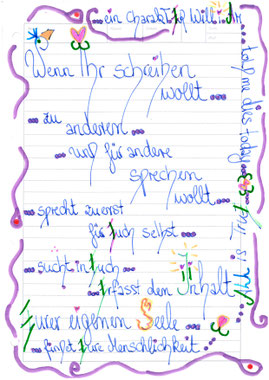 ... ein Charakter will ...
Wenn Ihr schreiben
wollt ...
... zu
anderen ...
... und für andere
sprechen
wollt ...
... sprecht zuerst
für Euch selbst ...
... sucht in Euch ...
... Erfasst den Inhalt
Eurer eigenen Seele ...
... findet Eure Menschlichkeit ...
told me this today